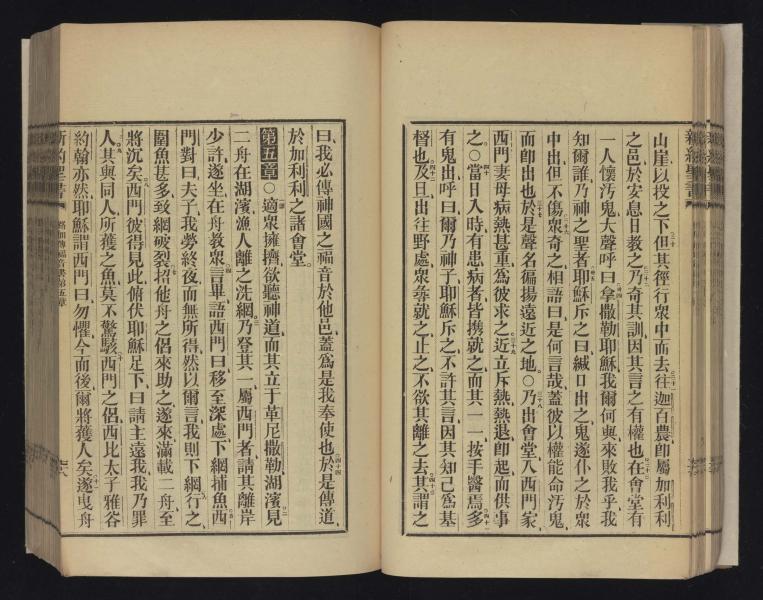 山崖以投之下但其徑行衆中而去往迦百農卽屬加利利
之邑於安息日教之乃奇其訓因其言之有權也在會堂有
一人懷汚鬼大聲呼曰拿撒勒耶穌我爾何與來敗我乎我
知爾誰乃神之聖者耶穌斥之曰緘口出之鬼遂仆之於衆
中出但不傷衆奇之相語曰是何言哉蓋彼以權能命汚鬼
而卽出也於是聲名徧揚遠近之地〇乃出會堂入西門家
西門妻母病熱甚重爲彼求之近立斥熱熱退卽起而供事
之〇當日入時有患病者皆携就之而其一一按手醫焉多
有鬼出呼曰爾乃神子耶穌斥之不許其言因其知己爲基
督也及旦出往野處衆尋就之止之不欲其離之去其謂之
曰我必傳神國之福音於他邑蓋爲是我奉使也於是傳道
於加利利之諸會堂
第五章〇適衆擁擠欲聽神道而其立于革尼撒勒湖濱見
二舟在湖濱漁人離之洗網乃登其一屬西門者請其離岸
少許遂坐在舟教衆言畢語西門曰移至深處下網捕魚西
門對曰夫子我勞終夜而無所得然以爾言我則下網行之
圍魚甚多致網破裂招他舟之侶來助之遂來滿載二舟至
將沉矣西門彼得見此俯伏耶穌足下曰請主遠我我乃罪
人其與同人所獲之魚莫不驚駭西門之侶西比太子雅各
約翰亦然耶穌謂西門曰勿懼今而後爾將獲人矣遂曳舟
新約聖書 路加傳福音書第五章